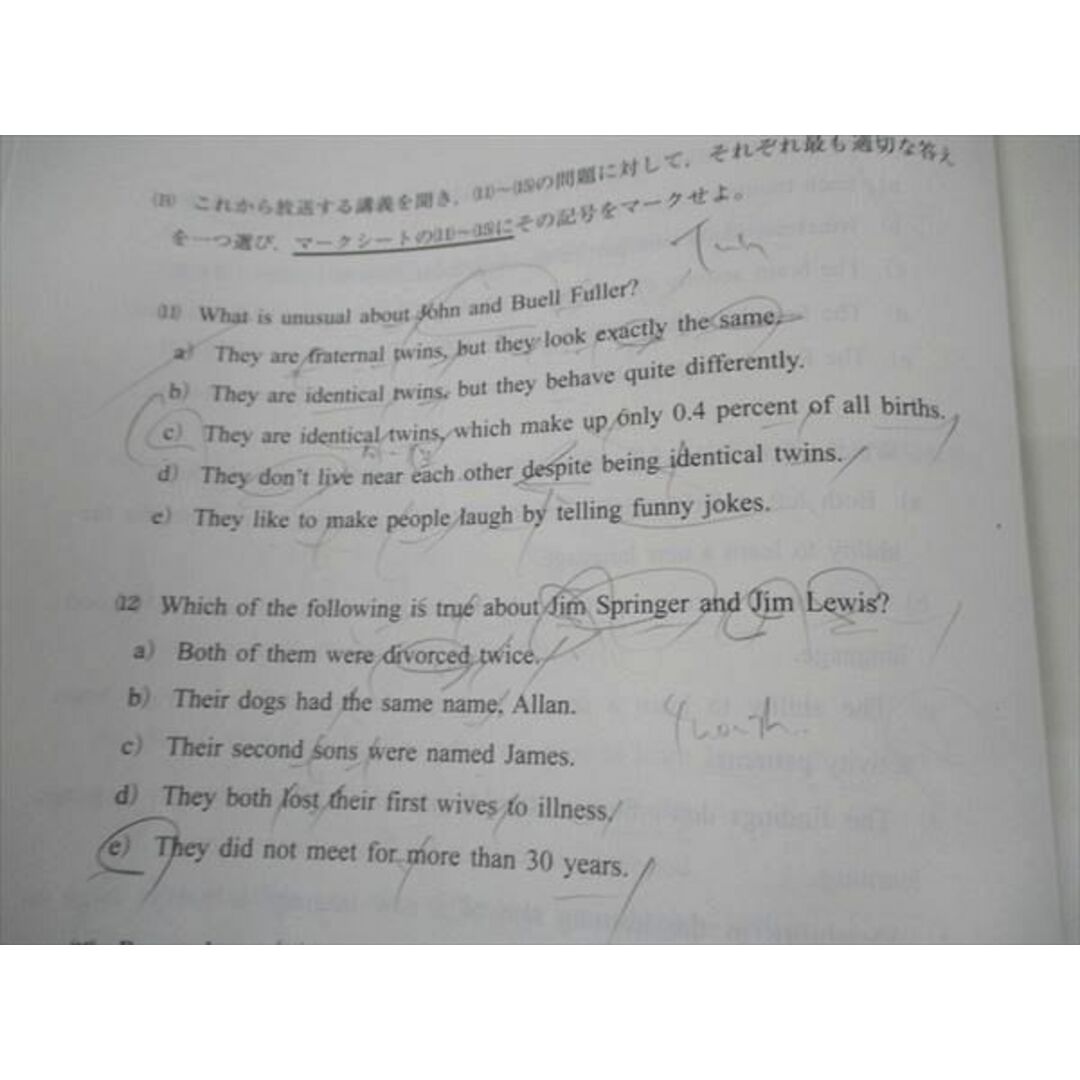 これから放送する講義を聞き,(11)~(15)の問題に対して,それぞれ最も適切な答え
を一つ選び,マークシートの(11)~(15)にその記号をマークせよ。
(11) What is unusual about John and Buell Fuller?
a) They are fraternal twins, but they look exactly the same.
b) They are identical twins, but they behave quite differently.
c) They are identical twins, which make up only 0.4 percent of all births.
d) They don't live near each other despite being identical twins.
e) They like to make people laugh by telling funny jokes.
(12) Which of the following is true about Jim Springer and Jim Lewis?
a) Both of them were divorced twice.
b) Their dogs had the same name, Allan.
c) Their second sons were named James.
d) They both lost their first wives to illness.
e) They did not meet for more than 30 years.